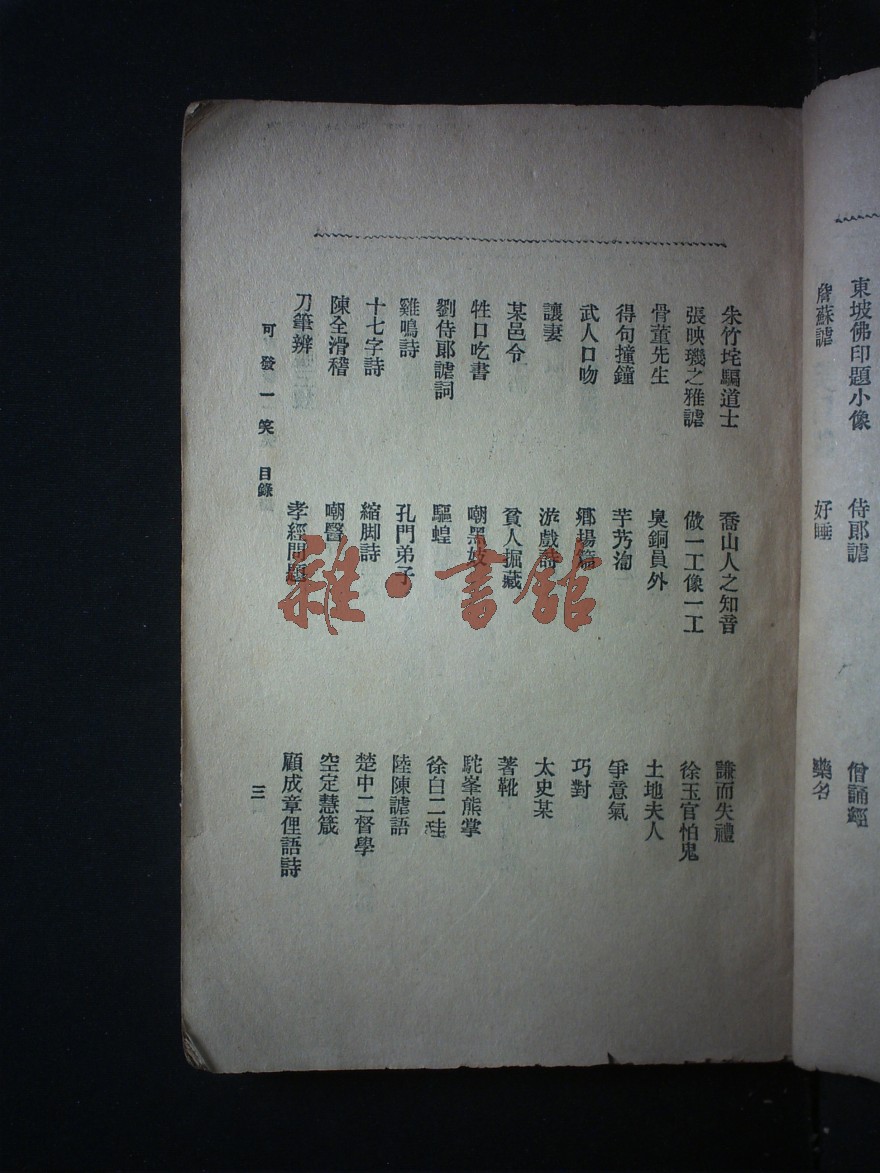 東坡佛印題小像
侍郎謔
僧誦經
詹蘇謔
好睡
藥名
朱竹垞騙道士
喬山人之知音
謙而失禮
張映璣之雅謔
做一工像一工
徐玉官怕鬼
骨董先生
臭銅員外
土地夫人
得句撞鐘
芋艿淘
爭意氣
武人口吻
鄉場篇
巧對
讓妻
游戲詩
太史某
某邑令
貧人掘藏
著靴
牲口吃書
嘲黑妓
駝峯熊掌
劉侍郎謔詞
驅蝗
徐白二硅
雞鳴詩
孔門弟子
陸陳謔語
十七字詩
縮脚詩
楚中二督學
陳全滑稽
嘲醫
空定慧箴
刀筆辨
孝經問題
顧成章俚語詩
可發一笑 目錄
三
雜·書館